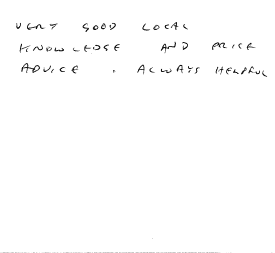 VERY GOOD LOCAL
KNOWLEDGE AND PRICE
ADVICE . ALWAYS HELPFUL